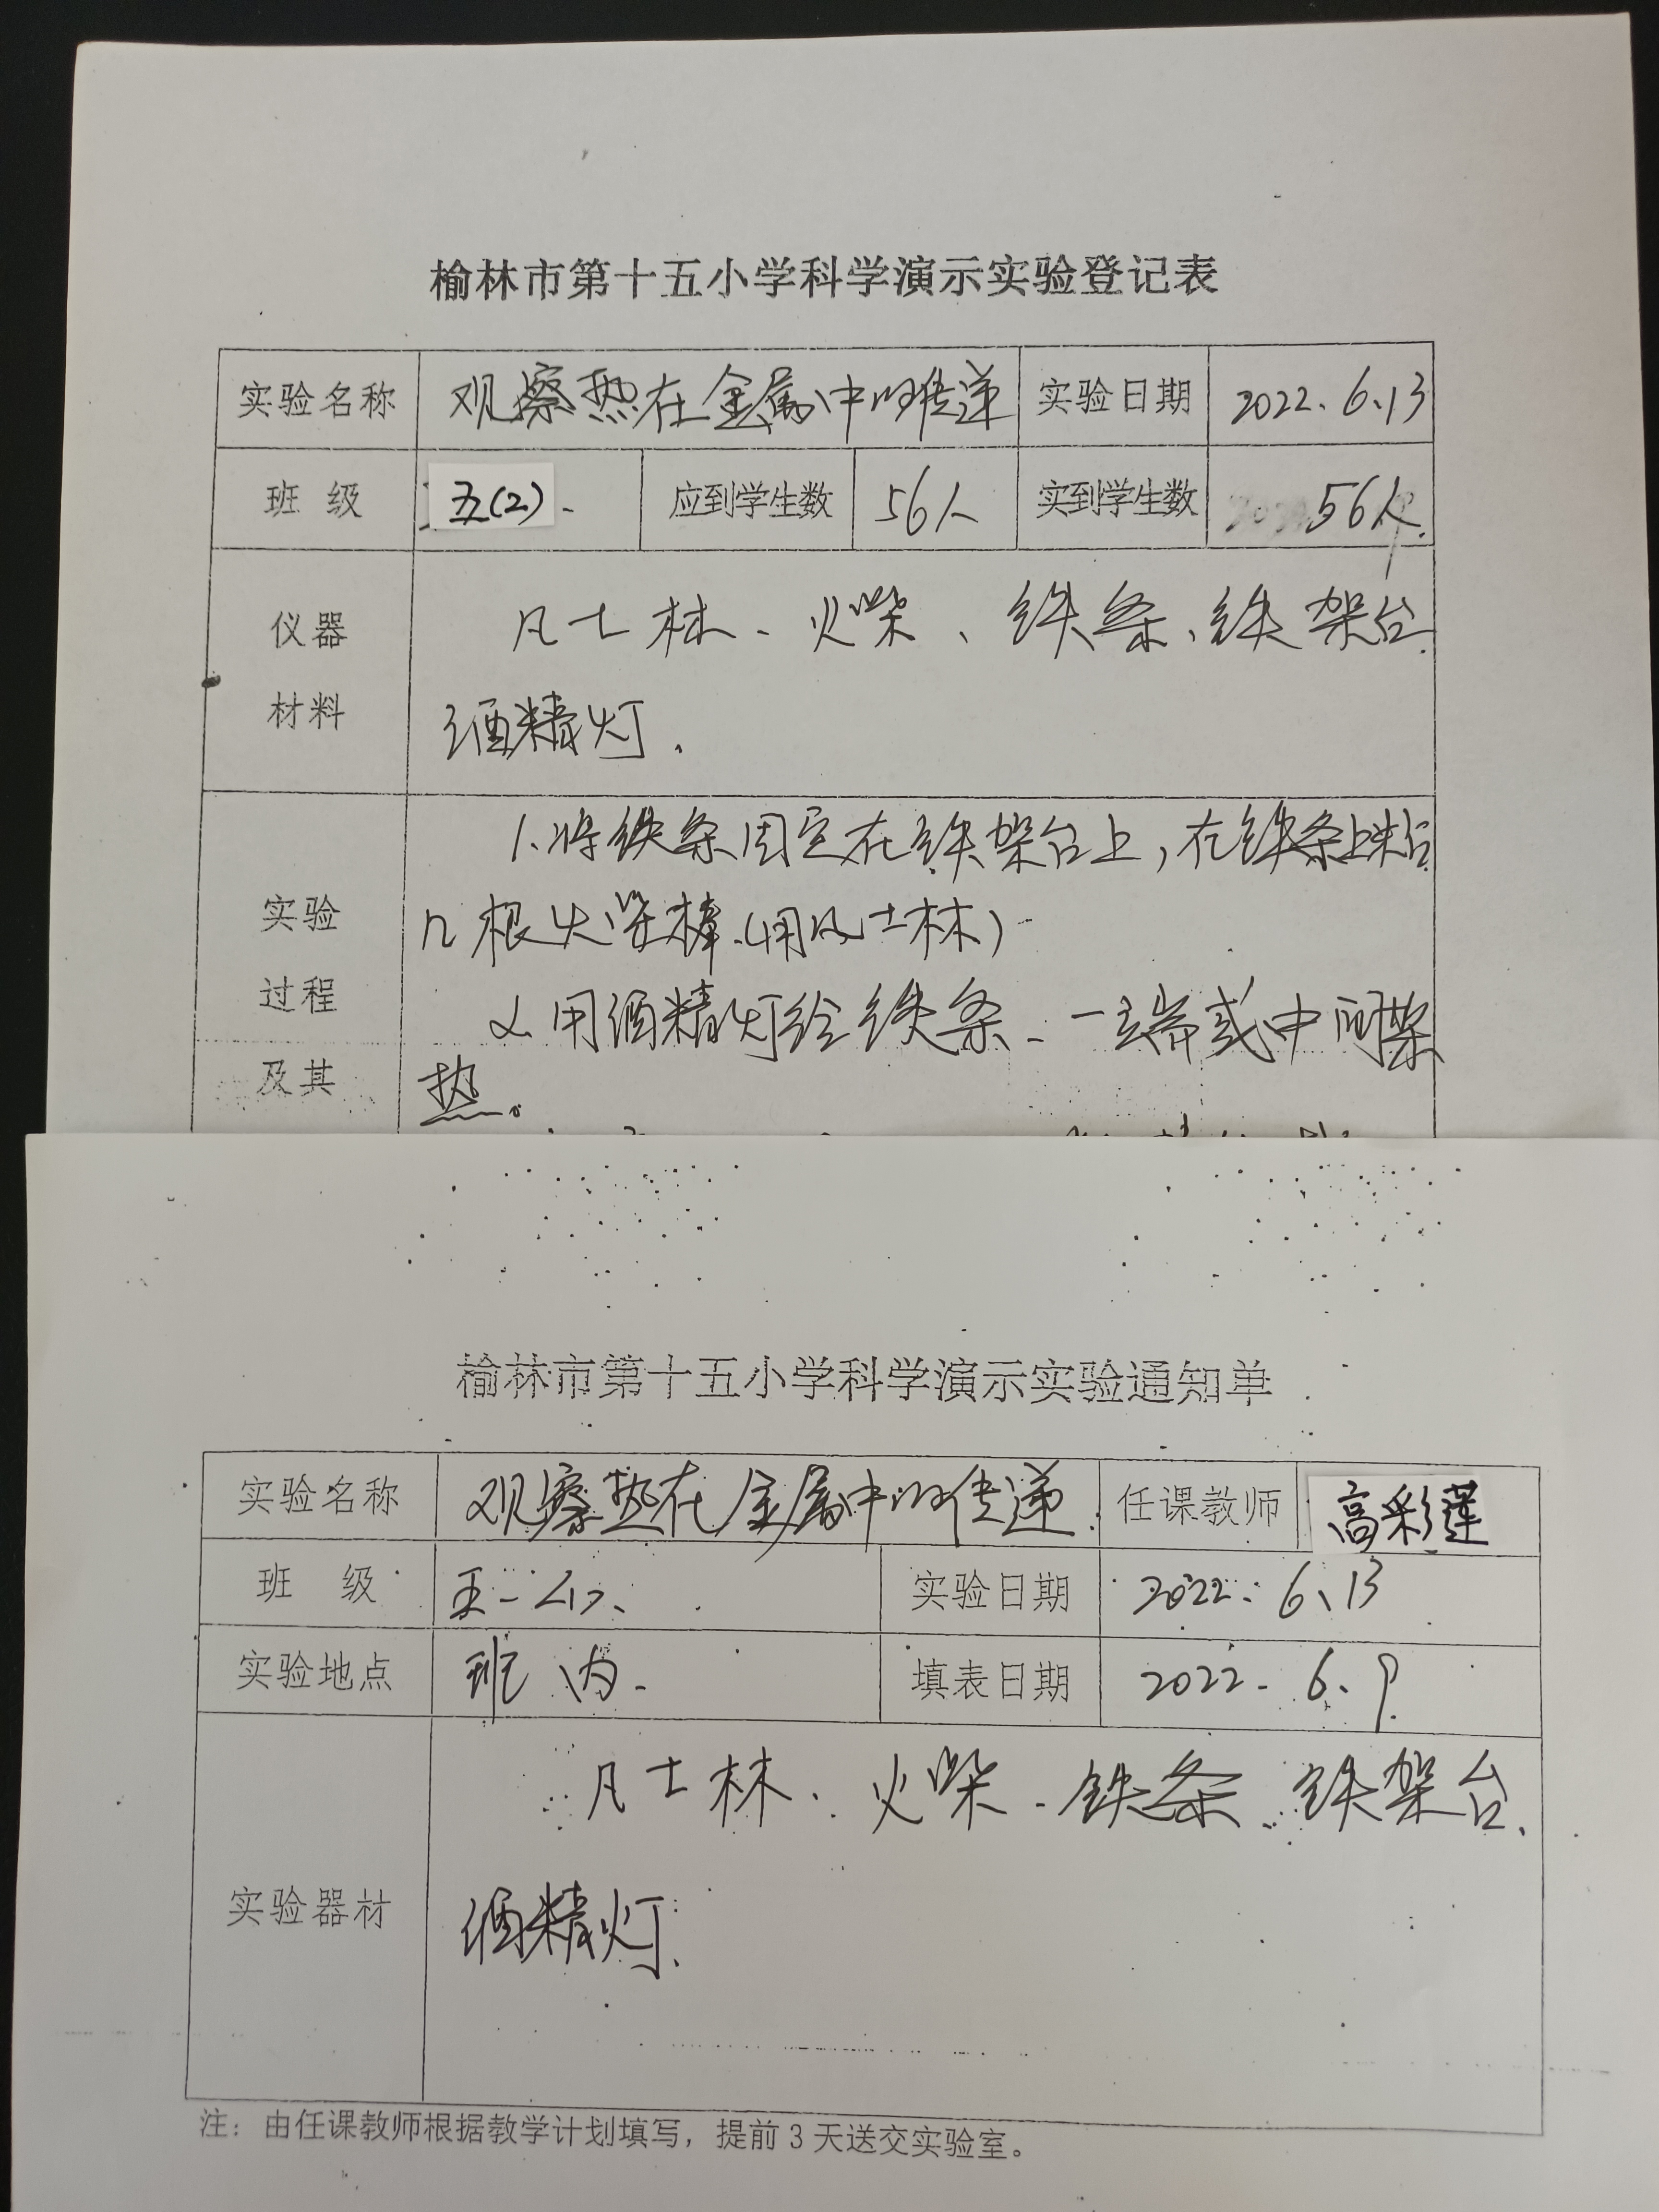 榆林市第十五小学科学演示实验登记表
实验名称 观察热在金属中的传递 实验日期 2022.6.13
班 级 五(2) 应到学生数 56人 实到学生数 56人
仪器
材料
凡士林、火柴、铁条、铁架台
酒精灯.
实验
过程
及其
1.将铁条固定在铁架台上,在铁条上粘
几根火柴棒.(用凡士林)
2.用酒精灯给铁条一端或中间加
热。
榆林市第十五小学科学演示实验通知单
实验名称 观察热在金属中的传递. 任课教师 高彩莲
班 级 五 实验日期 2022. 6.13
实验地点 班内. 填表日期 2022. 6.9
实验器材
凡士林、火柴、铁条、铁架台、
酒精灯.
注：由任课教师根据教学计划填写，提前3天送交实验室。